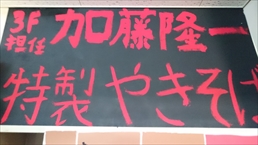 3F
担任 加藤隆一
特製やきそば